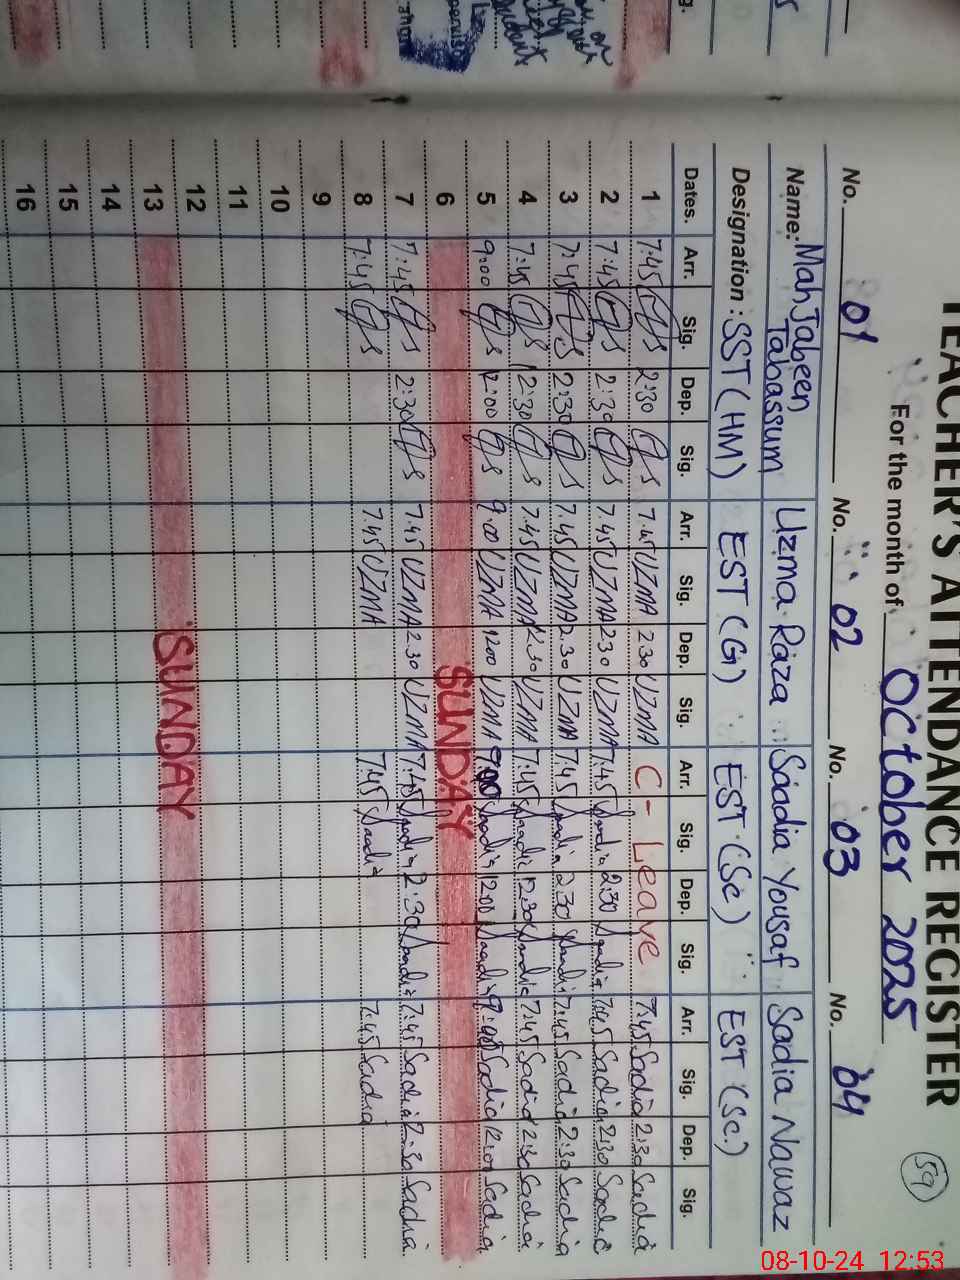 TEACHER'S ATTENDANCE REGISTER
59
For the month of October 2025
No. 01 No. 02 No. 03 No. 04
Name: MahJabeen Tabassum Uzma Raza Saadia Yousaf Sadia Nawaz
Designation: SST (HM) EST (G) EST (Sc) EST (Sc.)
Dates. Arr. Sig. Dep. Sig. Arr. Sig. Dep. Sig. Arr. Sig. Dep. Sig. Arr. Sig. Dep. Sig.
1 7:45 2:30 7.45 UZMA 2.30 UZMA C - Leave 7:45 Sadia 2:30 Sadia
2 7:45 2:30 7.45 UZMA 2.30 UZMA 7:45 Saadia 2:30 Saadia 7:45 Sadia 2:30 Sadia
3 7:45 2:30 7.45 UZMA 2.30 UZMA 7:45 Saadia 2:30 Saadia 7:45 Sadia 2:30 Sadia
4 7:45 12:30 7.45 UZMA 12.30 UZMA 7:45 Saadia 12:30 Saadia 7:45 Sadia 12:30 Sadia
5 9:00 12:00 9.00 UZMA 1200 UZMA 9:00 Saadia 1200 Saadia Sadia Sadia
6 SUNDAY
7 7:45 2:30 7.45 UZMA 2.30 UZMA 7:45 Saadia 2:30 Saadia 7:45 Sadia 2:30 Sadia
8 7:45 7.45 UZMA 7:45 Saadia 7:45 Sadia
9
10
11
12
13 SUNDAY
14
15
16
08-10-24 12:53